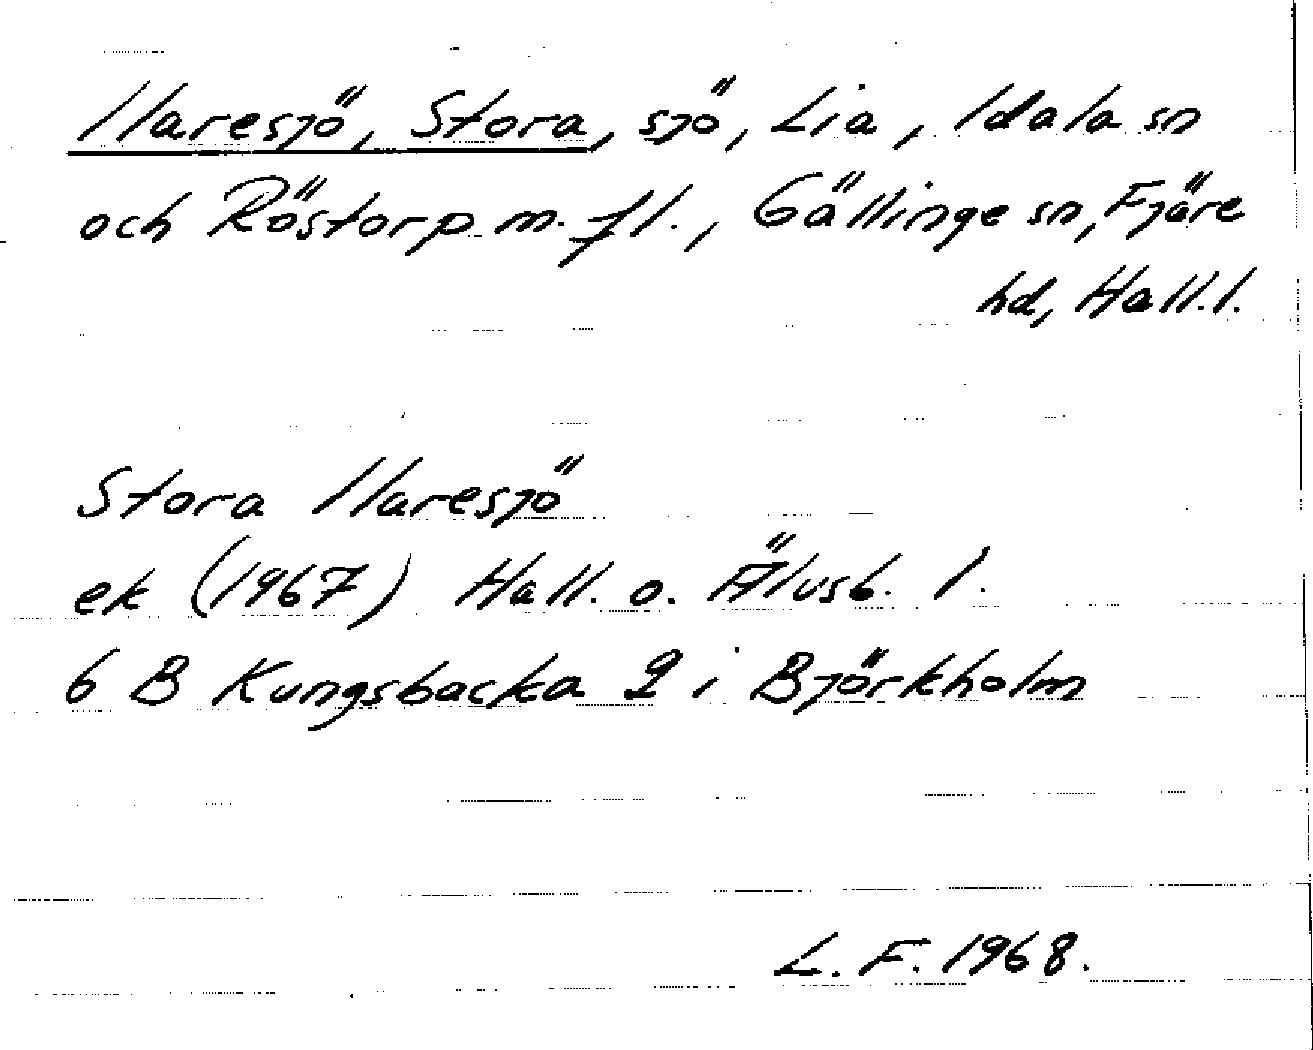 Ilaresjö, Stora, sjö, Lia, Idala sn
och Röstorp m. fl., Gällinge sn, Fjäre
hd, Hall.l.
Stora Ilaresjö
ek (1967) Hall. o. Älvsb. l.
6 B Kungsbacka 2 i Björkholm
L. F. 1968.